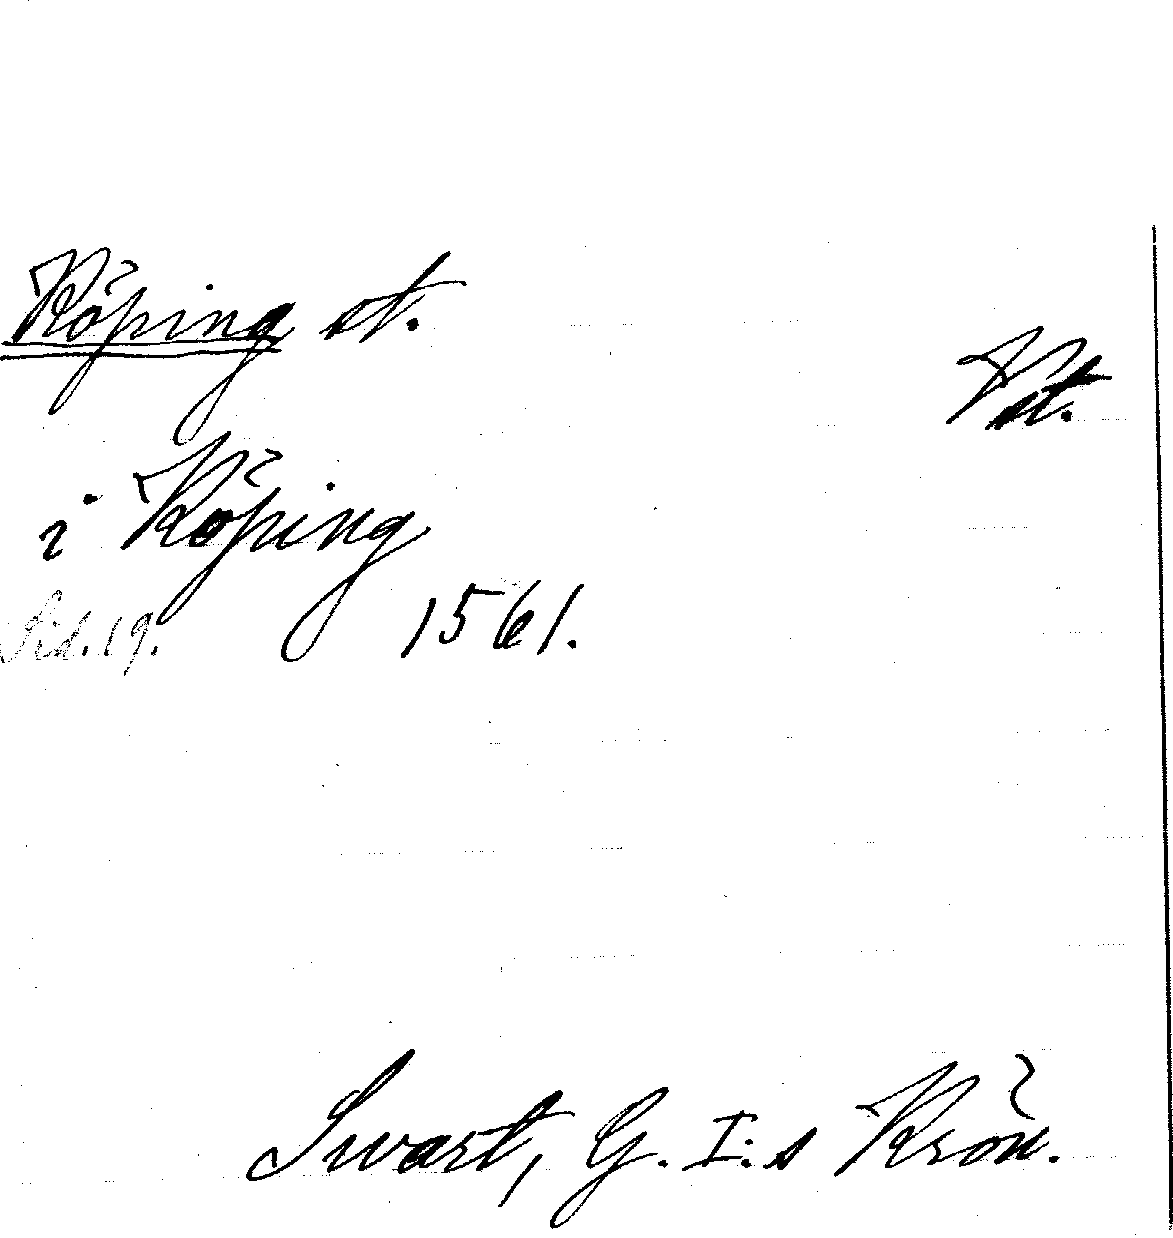 Köping st.
Vst.
i Köping
Sid. 19. 1561.
Swart, G. I:s Krön.